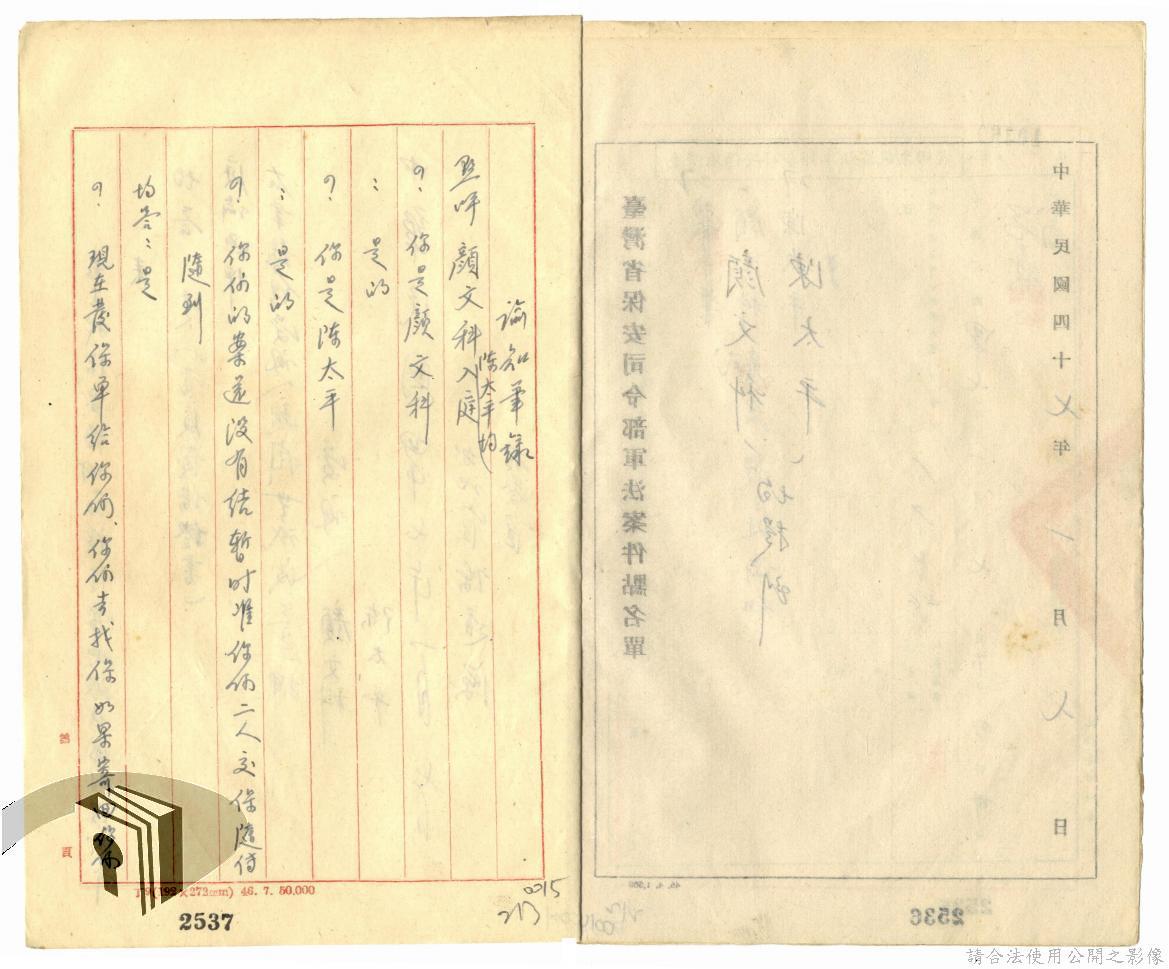 中華民國四十七年一月八日
陳太平
顏文科
均提到
臺灣省保安司令部軍法案件點名單
2536
諭知筆錄
點呼顏文科陳太平均入庭
?:你是顏文科
:是的
?:你是陳太平
:是的
?:你們的案還沒有結暫时准你們二人交保隨傳
隨到
均答:是
?:現在發保單給你們、你們去找保如果寄回
第
頁
(192×272mm) 46. 7. 50,000
0015
213
2537
請合法使用公開之影像